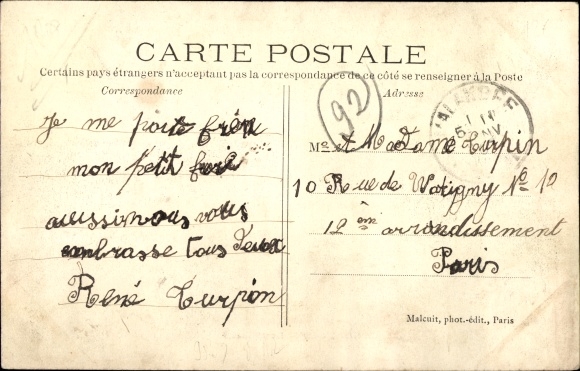 CARTE POSTALE
Certains pays étrangers n'acceptant pas la correspondance de ce côté se renseigner à la Poste
Correspondance
Adresse
92
Je me porte
mon petit
aussi nous vous
embrasse tous deux
René Turpin
Mr et Madame Turpin
10 Rue de Watigny No 10
12 èm arrondissement
Paris
Malcuit, phot.-édit., Paris